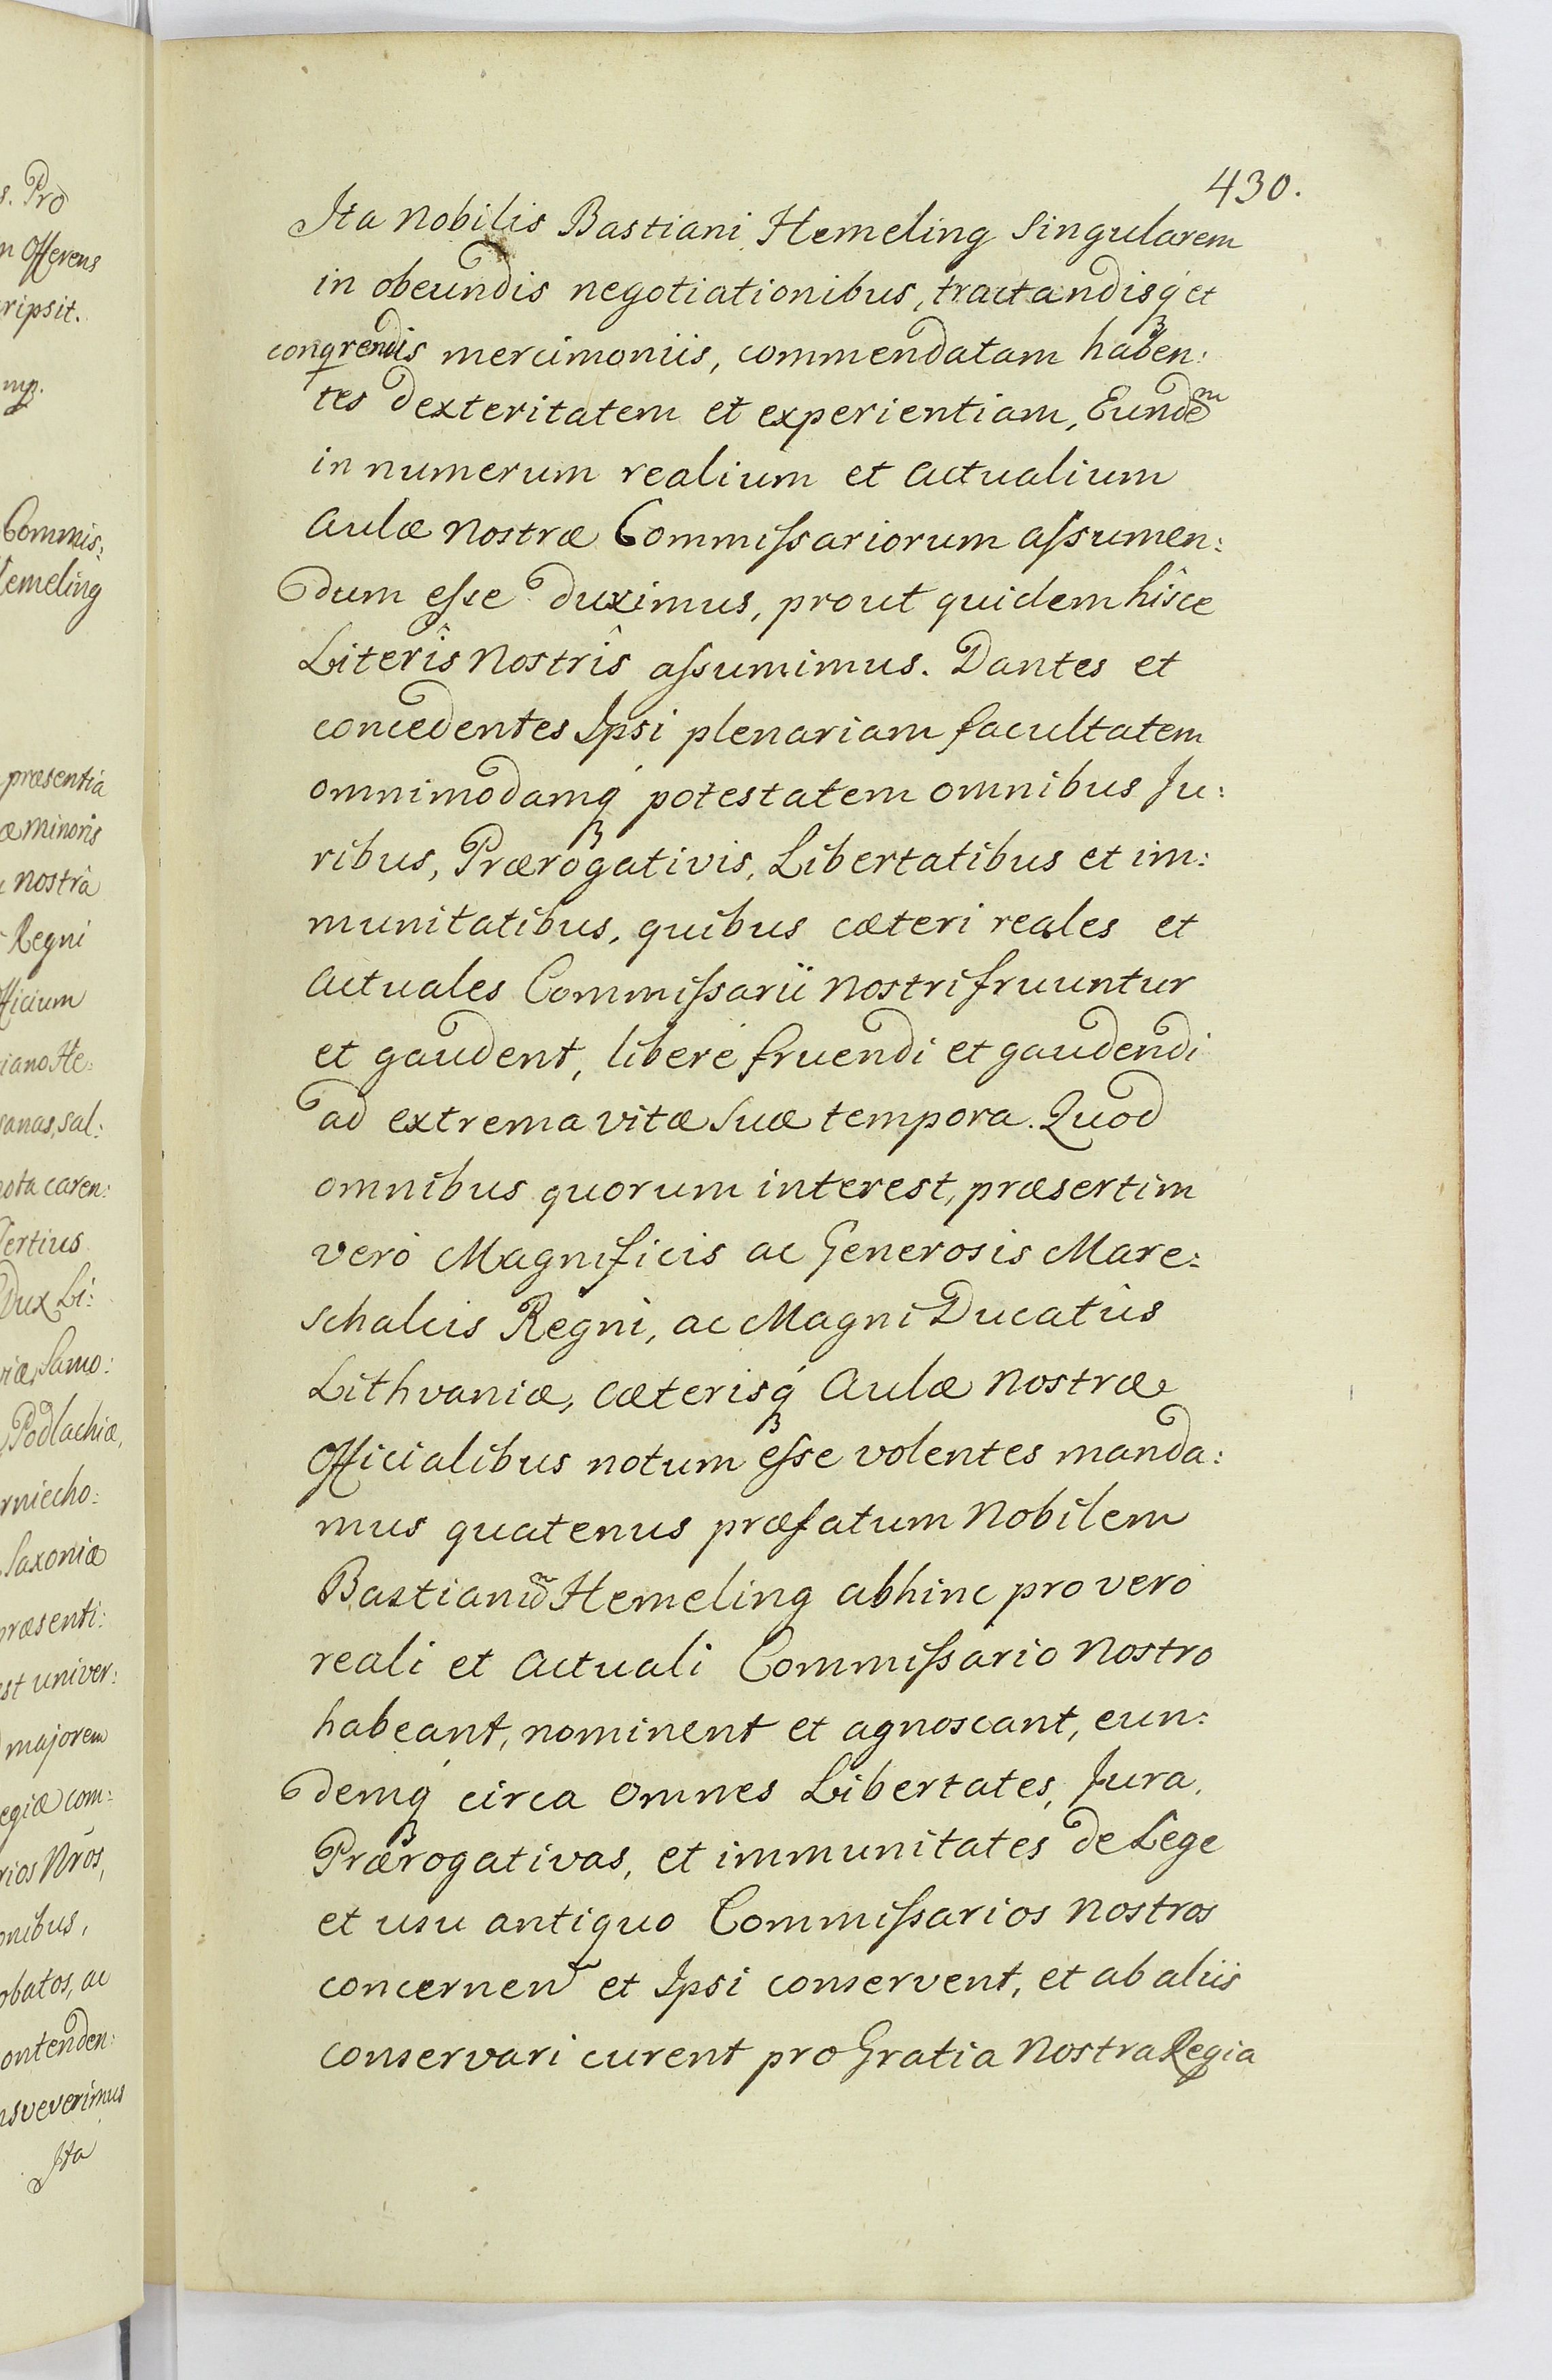 s. Pro
n Offerens
ripsit.
mp.
Commis:
emeling
præsentia
æ Minoris
nostra
Regni
fficium
iano He:
sanas, sal:
nota caren:
Tertius
Dux Li:
riæ, Samo:
Podlachiæ,
rniecho:
Saxoniæ
præsenti:
st univer:
majorem
egiæ com:
rios Nros,
onibus,
obatos, ac
ontenden:
nsveverimus
Ita
430.
Ita Nobilis Bastiani Hemeling singularem
in obeundis negotiationibus, tractandisq́ et
conqrendis mercimoniis, commendatam haben:
tes dexteritatem et experientiam, Eundem
in numerum realium et actualium
Aulæ Nostræ Commissariorum assumen:
dum esse duximus, prout quidem hîsce
Literîs Nostrîs assumimus. Dantes et
concedentes Ipsi plenariam facultatem
omnimodamq́ potestatem omnibus Ju:
ribus, Prærogativis, Libertatibus et im:
munitatibus, quibus cæteri reales et
actuales Commissarii Nostri fruuntur
et gaudent, liberè fruendi et gaudendi
ad extrema vitæ suæ tempora. Quod
omnibus quorum interest, præsertim
verò Magnificis ac Generosis Mare:
schalcis Regni, ac Magni Ducatûs
Lithvaniæ, cæterisq́ Aulæ Nostræ
Officialibus notum esse volentes manda:
mus quatenus præfatum Nobilem
Bastianũ Hemeling abhinc pro vero
reali et actuali Commissario Nostro
habeant, nominent et agnoscant, eun:
demq́ circa omnes Libertates, Jura,
Prærogativas, et immunitates de Lege
et usu antiquo Commissarios Nostros
concernen̄ et Ipsi conservent, et ab aliis
conservari curent pro Gratia Nostra Regia